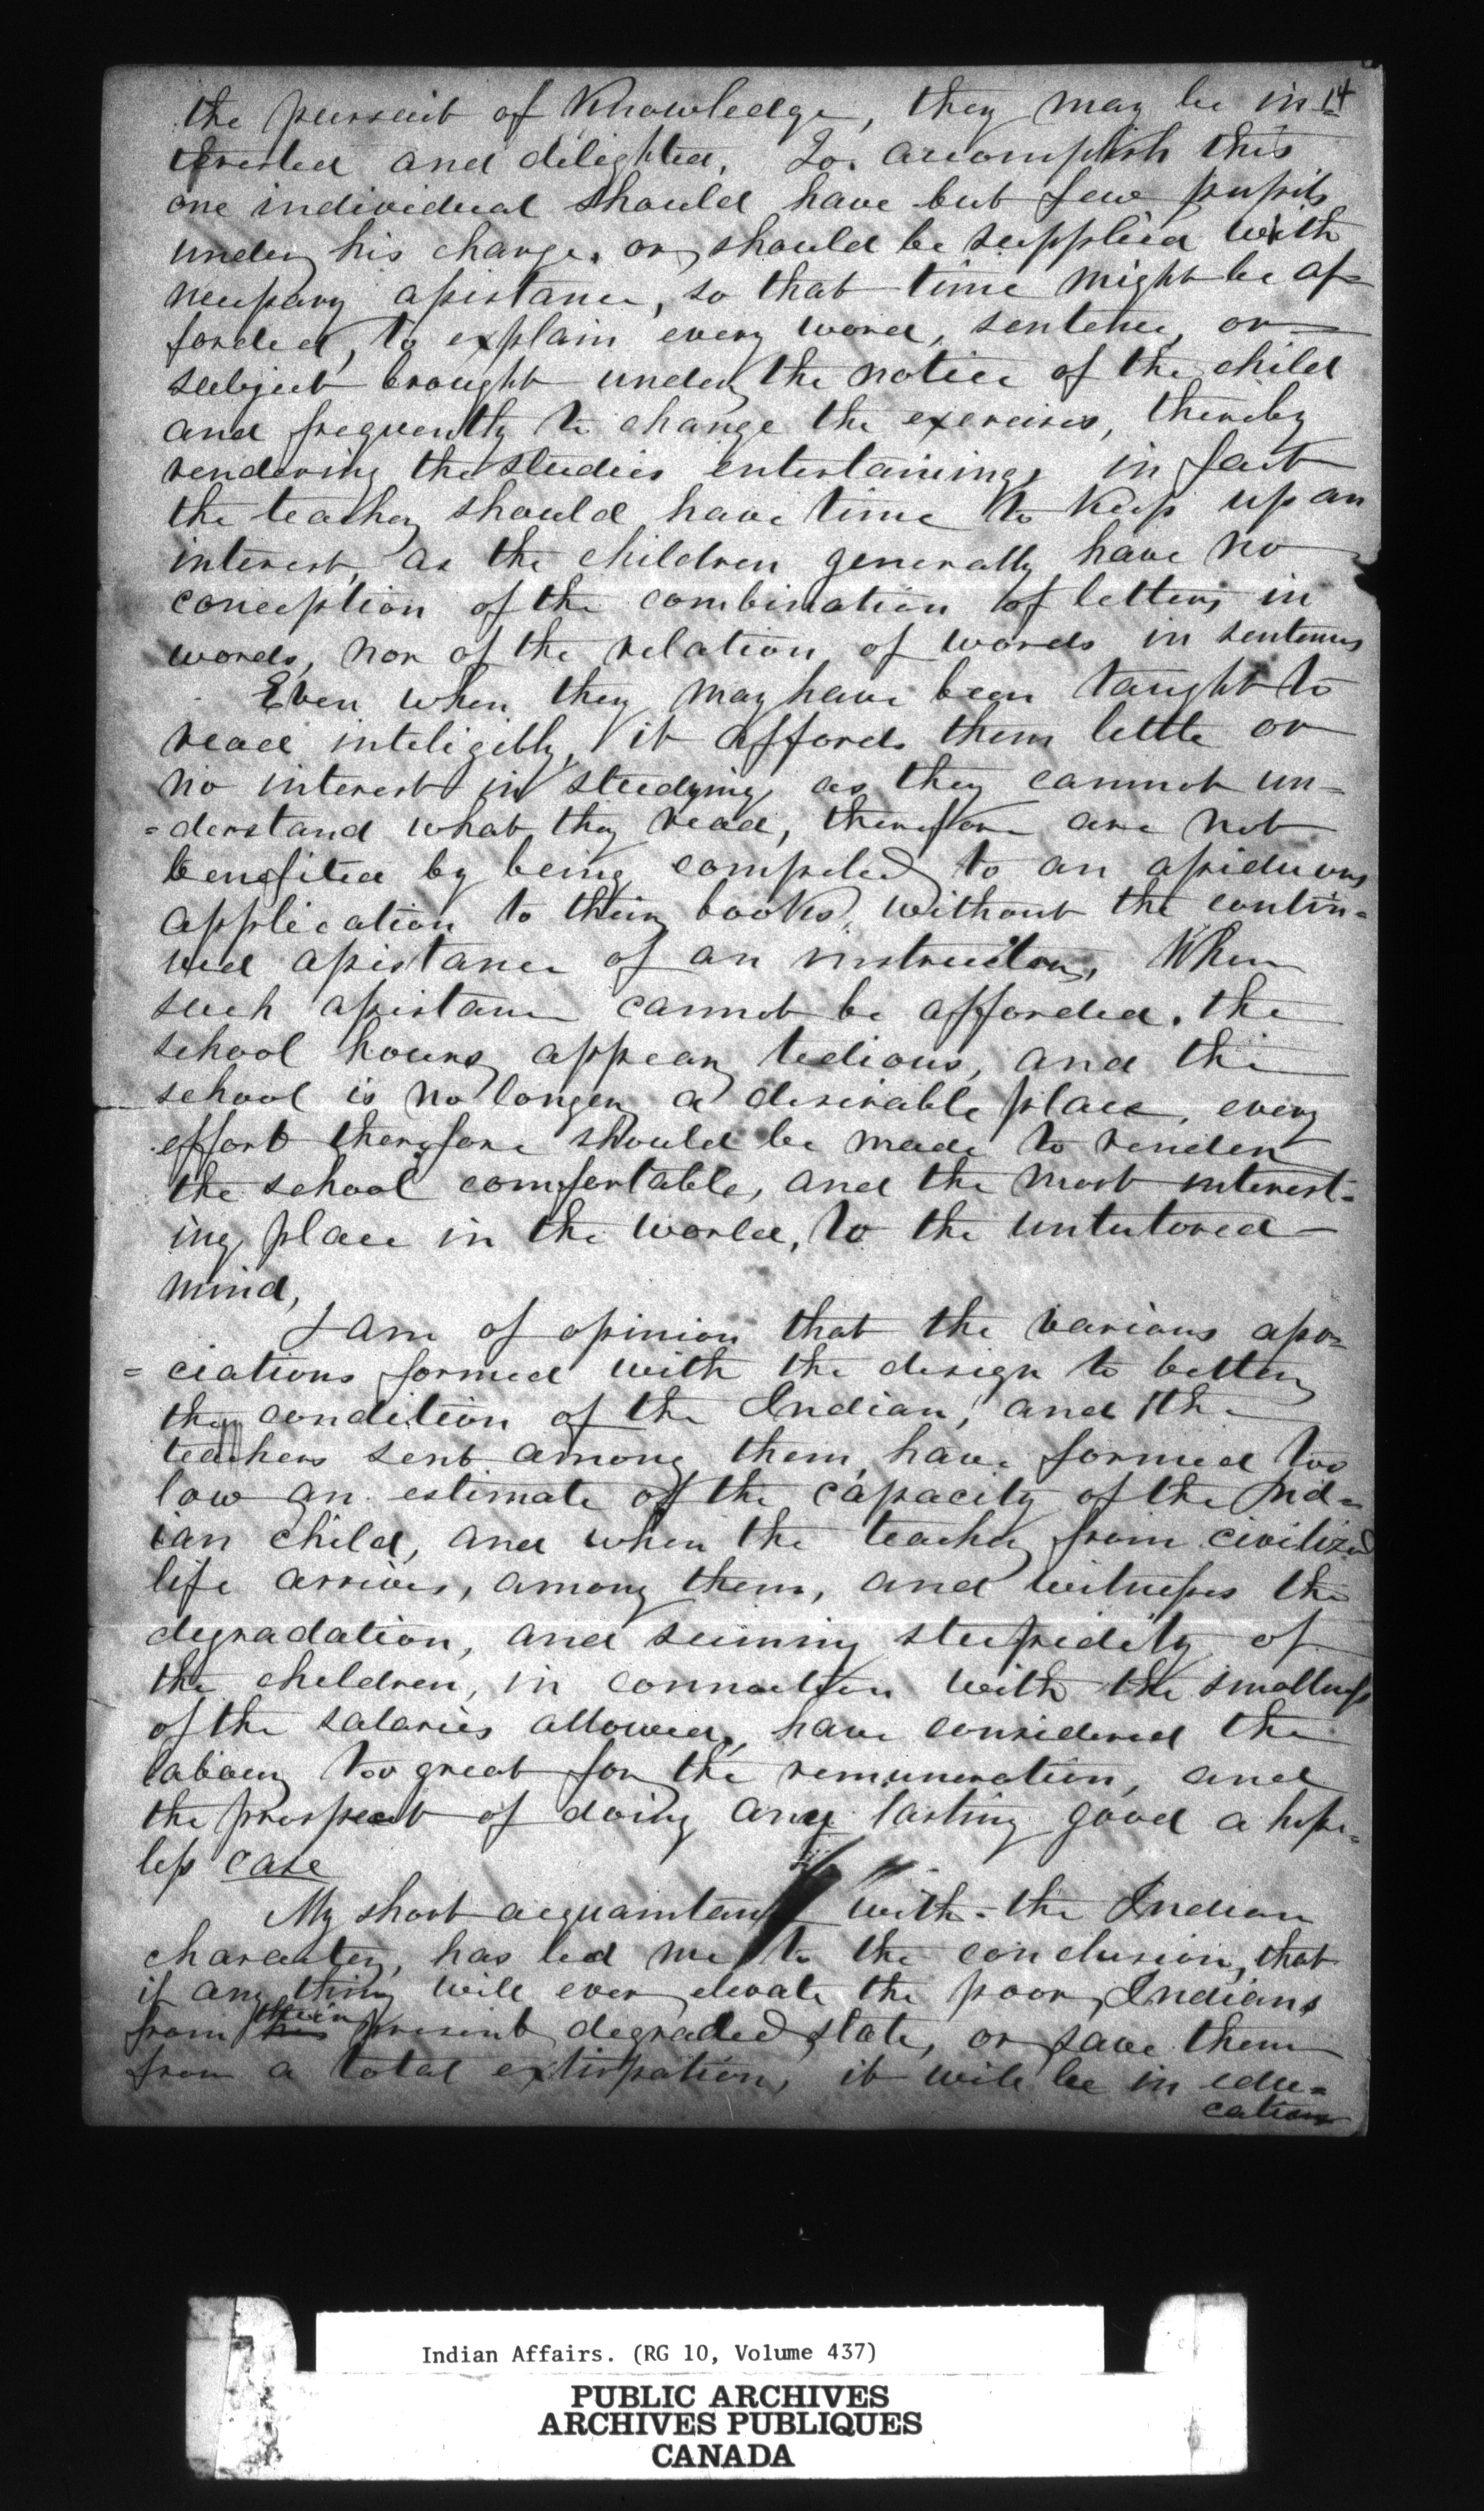 14
the pursuit of Knowledge, they may be in=
terested and delighted. To accomplish this
one individual should have but few pupils
under his charge, or should be supplied with
necessary assistance, so that time might be af=
forded, to explain every word, sentence, or
subject brought under the notice of the child
and frequently to change the exercises, thereby
rendering the studies entertaining, in fact
the teacher should have time to keep up an
interest, as the children generally have no
conception of the combination of letters in
words, nor of the relation of words in sentences
Even when they may have been taught to
read inteligibly, it affords them little or
no interest in studying, as they cannot un=
=derstand what they read, therefore are not
benefited by being compeled to an assiduous
application to their books, without the contin=
ued assistance of an instructor, When
such assistance cannot be afforded, the
school hours appear tedious, and the
school is no longer a desirable place, every
effort therefore should be made to render
the school comfortable, and the most interest=
ing place in the world, to the untutored
mind,
I am of opinion that the various asso=
=ciations formed with the design to better
the condition of the Indian, and the
teachers sent among them, have formed too
low an estimate of the capacity of the Ind=
ian child, and when the teacher from civilized
life arrives, among them, and witnesses the
degradation, and seeming stupidity of
the children, in connection with the smallness
of the salaries allowed, have considered the
labour too great for the remuneration, and
the prospect of doing any lasting good a hope=
less case
My short acquaintance with the Indian
character, has led me to the conclusion, that
if any thing will ever elevate the poor Indians
from their present degraded state, or save them
from a total extirpation, it will be in edu=
cation
Indian Affairs. (RG 10, Volume 437)
PUBLIC ARCHIVES
ARCHIVES PUBLIQUES
CANADA